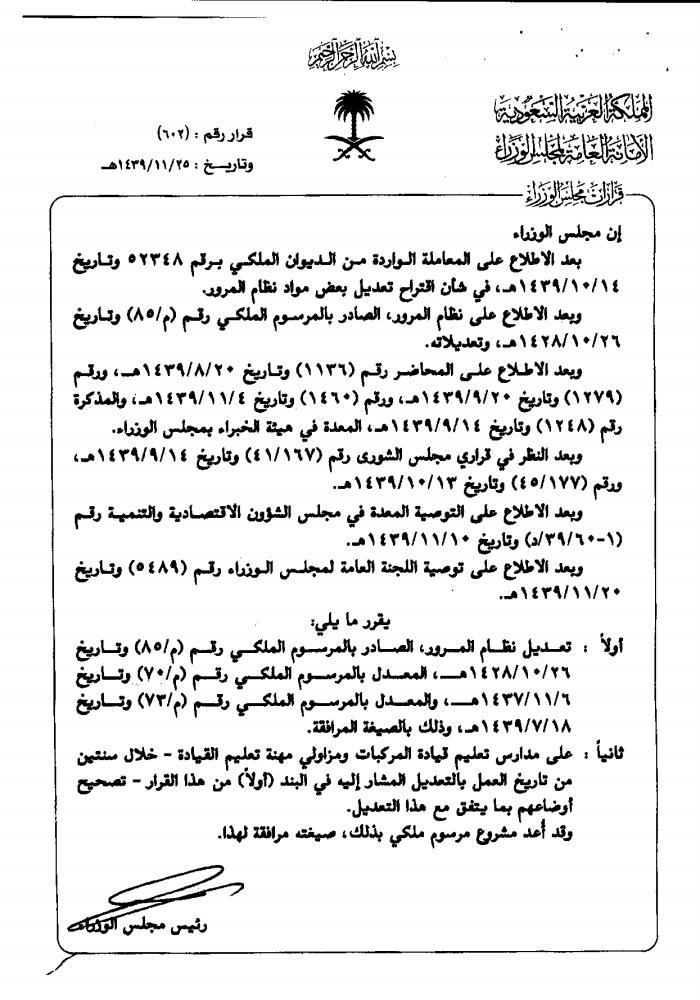 بسم الله الرحمن الرحيم
المملكة العربية السعودية
الأمانة العامة لمجلس الوزراء
قرار رقم : (٦٠٢)
وتاريخ : ١٤٣٩/١١/٢٥هـ
قرارات مجلس الوزراء
إن مجلس الوزراء
بعد الاطلاع على المعاملة الواردة من الديوان الملكي برقم ٥٢٣٤٨ وتاريخ
١٤٣٩/١٠/١٤هـ، في شأن اقتراح تعديل بعض مواد نظام المرور.
وبعد الاطلاع على نظام المرور، الصادر بالمرسوم الملكي رقم (م/٨٥) وتاريخ
١٤٢٨/١٠/٢٦هـ، وتعديلاته.
وبعد الاطلاع على المحاضر رقم (١١٣٦) وتاريخ ١٤٣٩/٨/٢٠هـ، ورقم
(١٢٧٩) وتاريخ ١٤٣٩/٩/٢٠هـ، ورقم (١٤٦٠) وتاريخ ١٤٣٩/١١/٤هـ، والمذكرة
رقم (١٢٤٨) وتاريخ ١٤٣٩/٩/١٤هـ، المعدة في هيئة الخبراء بمجلس الوزراء.
وبعد النظر في قراري مجلس الشورى رقم (٤١/١٦٧) وتاريخ ١٤٣٩/٩/١٤هـ،
ورقم (٤٥/١٧٧) وتاريخ ١٤٣٩/١٠/١٣هـ.
وبعد الاطلاع على التوصية المعدة في مجلس الشؤون الاقتصادية والتنمية رقم
(١-٣٩/٦٠/د) وتاريخ ١٤٣٩/١١/١٠هـ.
وبعد الاطلاع على توصية اللجنة العامة لمجلس الوزراء رقم (٥٤٨٩) وتاريخ
١٤٣٩/١١/٢٠هـ.
يقرر ما يلي:
أولاً : تعديل نظام المرور، الصادر بالمرسوم الملكي رقم (م/٨٥) وتاريخ
١٤٢٨/١٠/٢٦هـ، المعدل بالمرسوم الملكي رقم (م/٧٠) وتاريخ
١٤٣٧/١١/٦هـ، والمعدل بالمرسوم الملكي رقم (م/٧٣) وتاريخ
١٤٣٩/٧/١٨هـ، وذلك بالصيغة المرافقة.
ثانياً : على مدارس تعليم قيادة المركبات ومزاولي مهنة تعليم القيادة - خلال سنتين
من تاريخ العمل بالتعديل المشار إليه في البند (أولاً) من هذا القرار - تصحيح
أوضاعهم بما يتفق مع هذا التعديل.
وقد أُعد مشروع مرسوم ملكي بذلك، صيغته مرافقة لهذا.
رئيس مجلس الوزراء